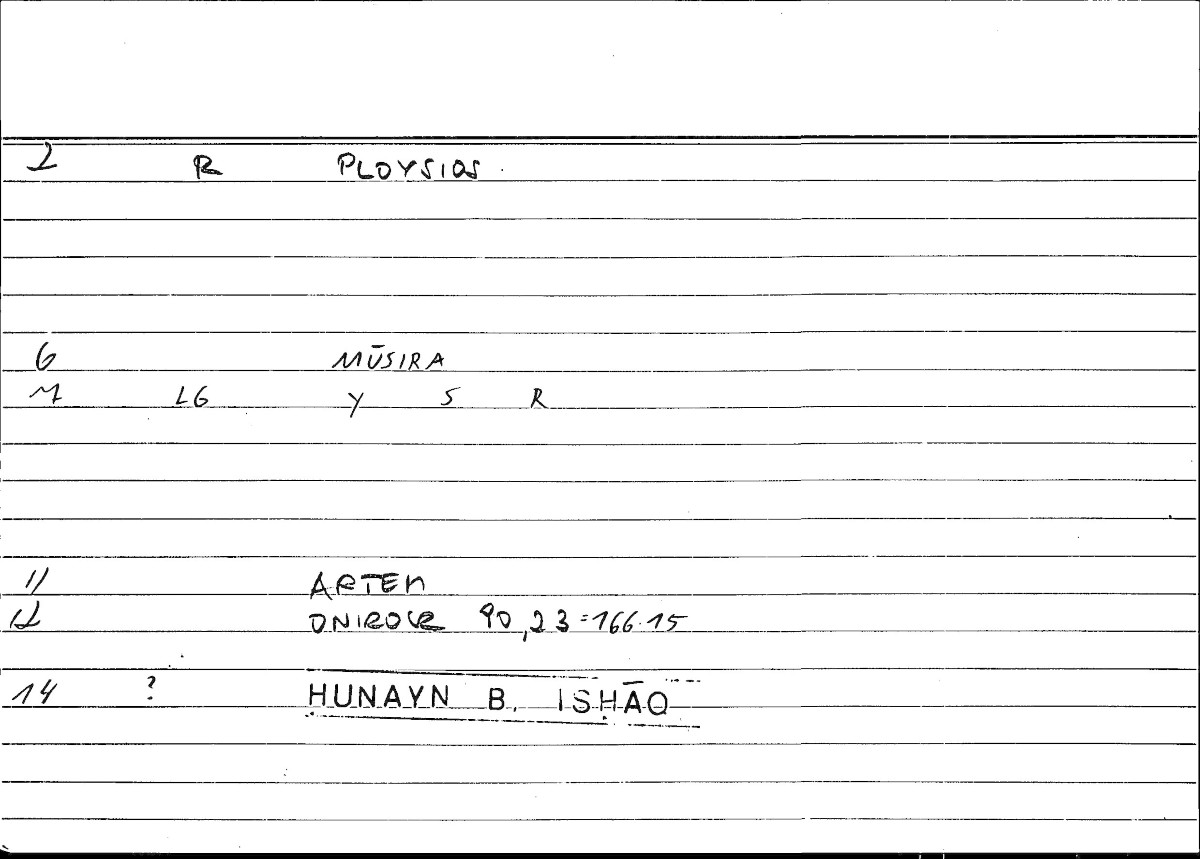 2 R PLOYSIOS
6 MŪSIRA
7 LG Y S R
11 ARTEM
12 ONIROCR 90,23=166.15
14 ? ḤUNAYN B. ISḤĀQ